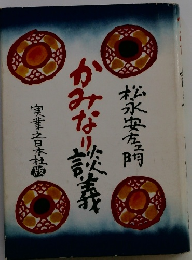 松永安左エ門
かみなり談義
実業之日本社版